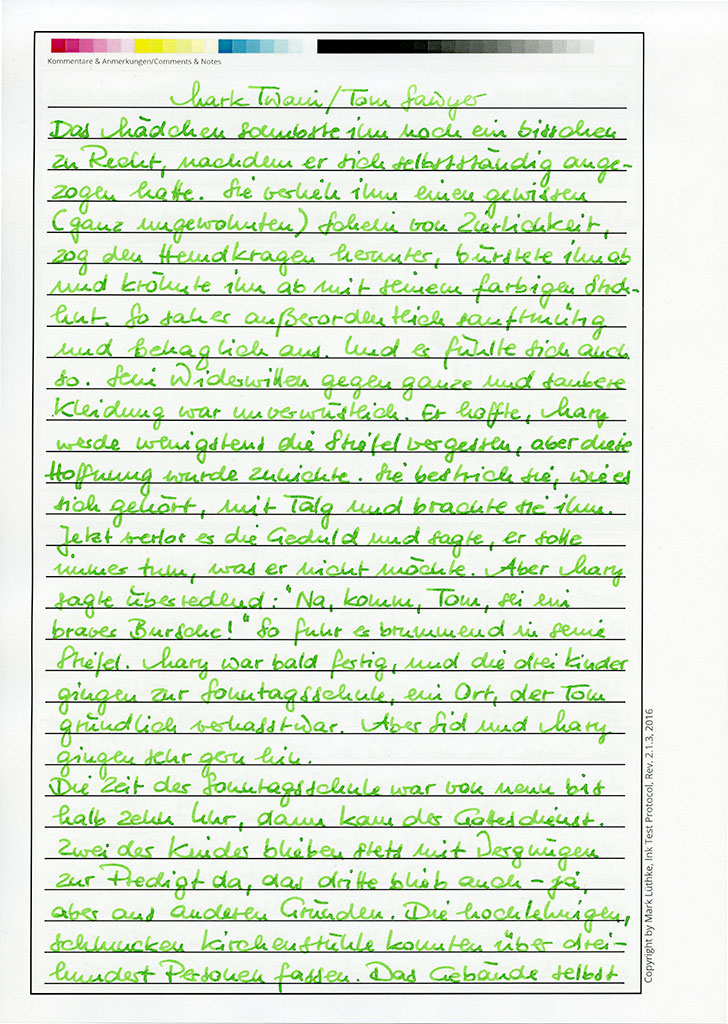 Kommentare & Anmerkungen/Comments & Notes
Mark Twain / Tom Sawyer
Das Mädchen säuberte ihn noch ein bisschen
zu Recht, nachdem er sich selbstständig ange-
zogen hatte. Sie verlieh ihm einen gewissen
(ganz ungewohnten) Schein von Zierlichkeit,
zog den Hemdkragen herunter, bürstete ihn ab
und krönte ihn ab mit seinem farbigen Stroh-
hut. So sah er außerordentlich sanftmütig
und behaglich aus. Und er fühlte sich auch
so. Sein Widerwillen gegen ganze und saubere
Kleidung war unverwüstlich. Er hoffte, Mary
werde wenigstens die Stiefel vergessen, aber diese
Hoffnung wurde zunichte. Sie bestrich sie, wie es
sich gehört, mit Talg und brachte sie ihm.
Jetzt verlor er die Geduld und sagte, er solle
immer tun, was er nicht möchte. Aber Mary
sagte überredend: "Na, komm, Tom, sei ein
braver Bursche!" So fuhr er brummend in seine
Stiefel. Mary war bald fertig, und die drei Kinder
gingen zur Sonntagsschule, ein Ort, der Tom
gründlich verhasst war. Aber Sid und Mary
gingen sehr gern hin.
Die Zeit der Sonntagsschule war von neun bis
halb zehn Uhr, dann kam der Gottesdienst.
Zwei der Kinder blieben stets mit Vergnügen
zur Predigt da, das dritte blieb auch – ja,
aber aus anderen Gründen. Die hochlehnigen,
schmucken Kirchenstühle konnten über drei-
hundert Personen fassen. Das Gebäude selbst
Copyright by Mark Lüthke, Ink Test Protocol, Rev. 2.1.3, 2016